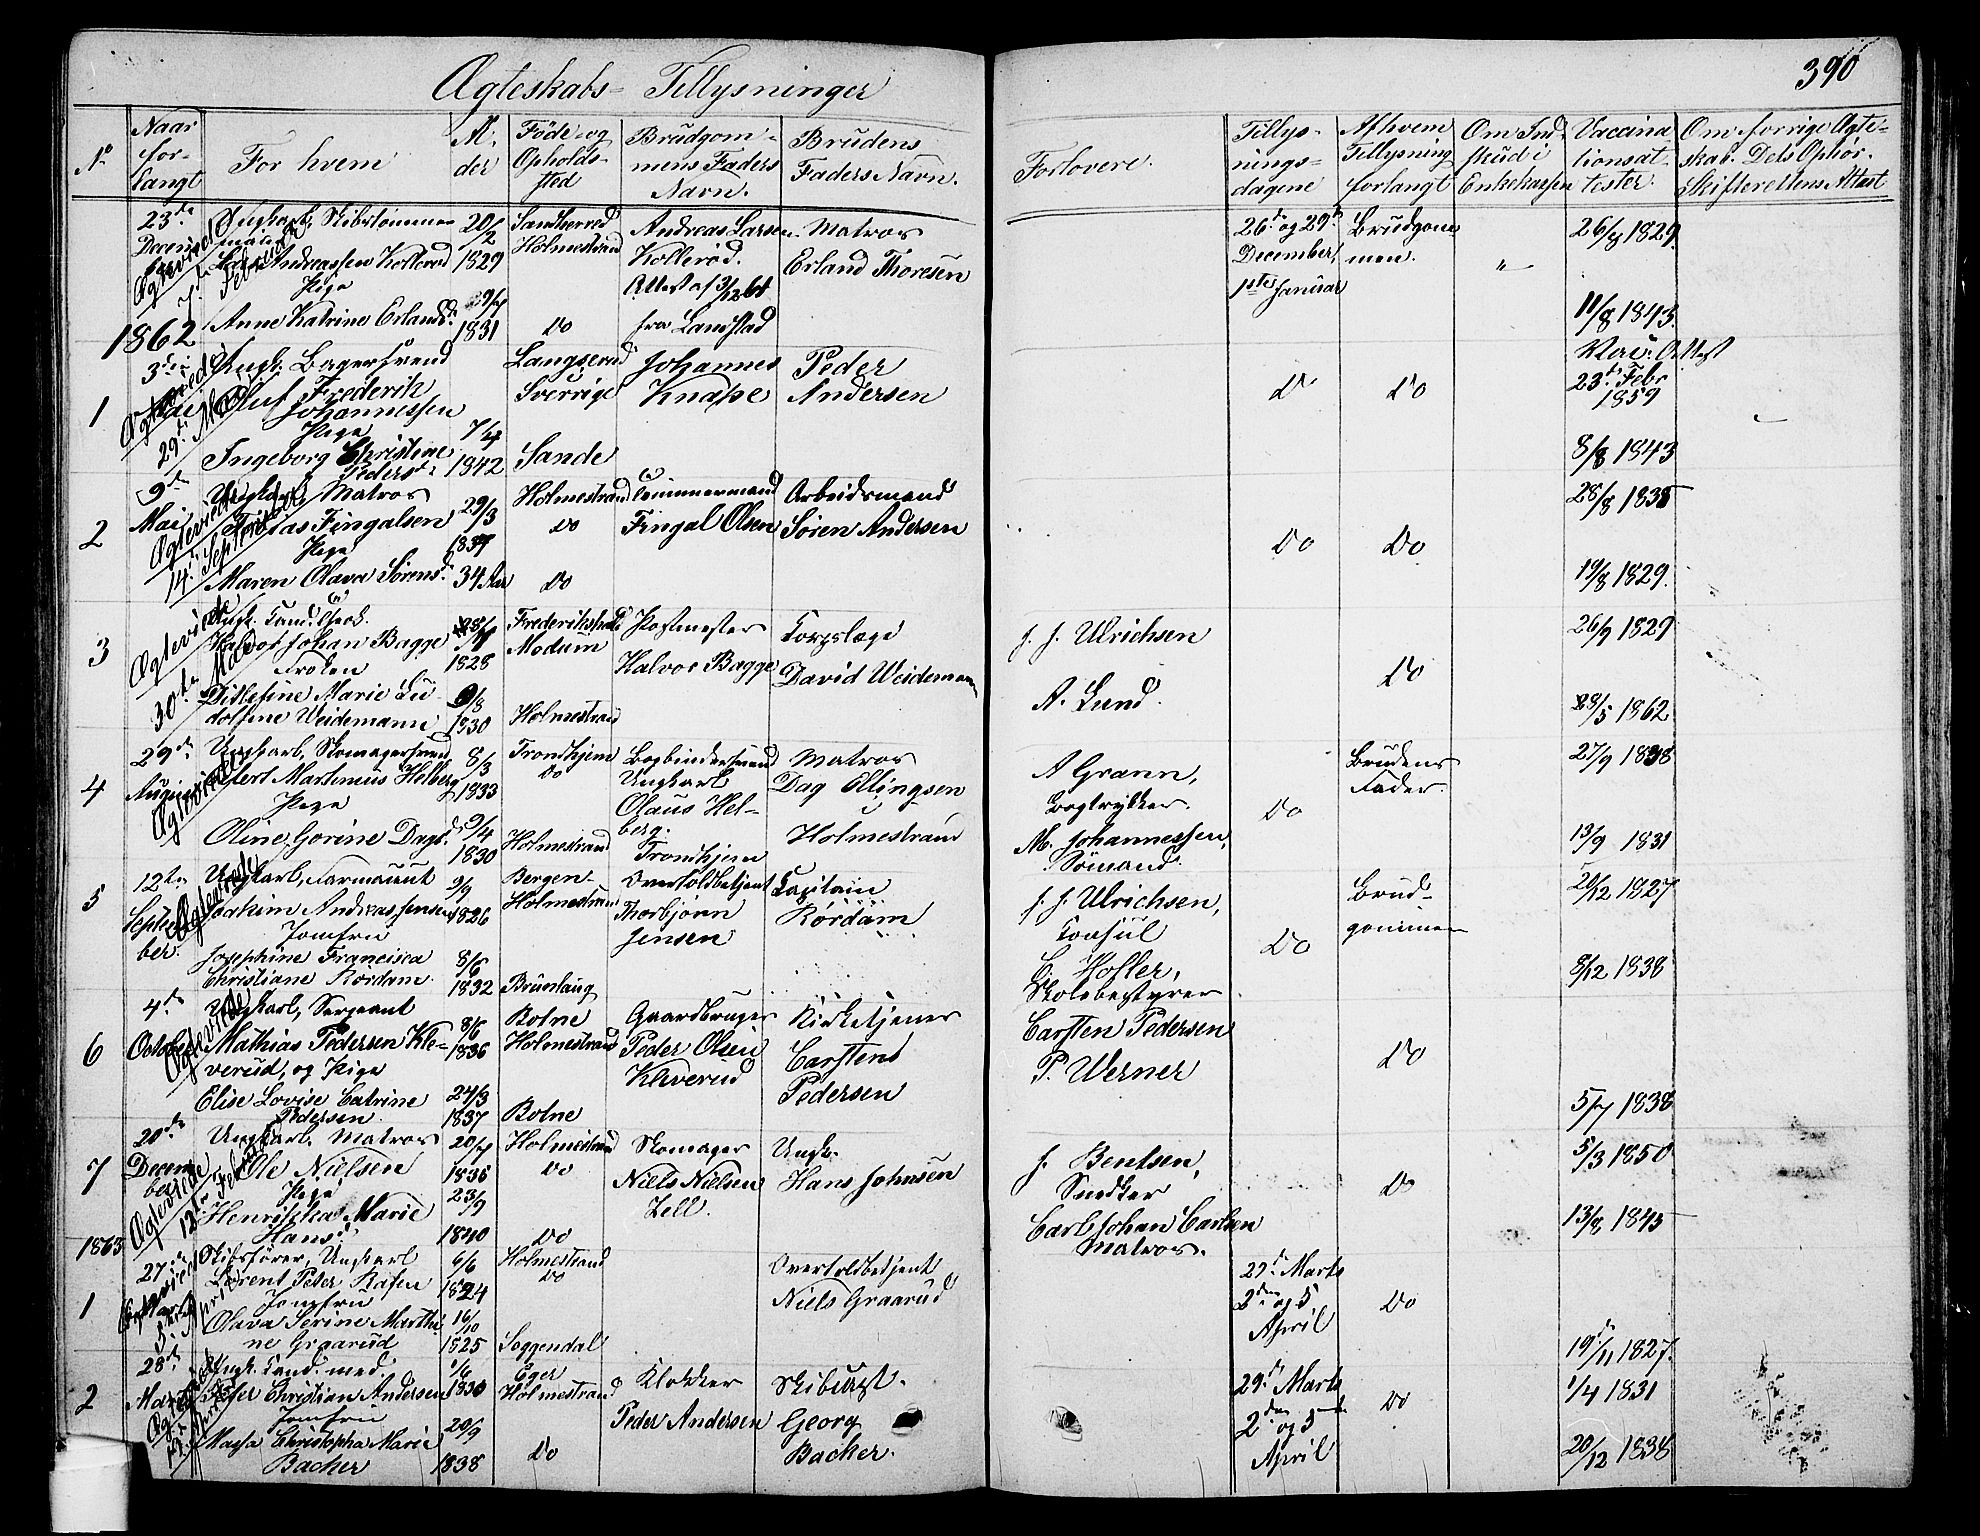 390
Ægteskabs- Tillysninger
No
Naar forlangt
For hvem
Alder
Føde- og Opholdssted
Brudgommens Faders Navn.
Brudens Faders Navn.
Forlovere.
Tillysningsdagene
Af hvem Tillysning forlangt
Om Indskud i Enkekassen
Vaccinationsattester.
Om forrige Ægteskab. Dets Ophør. Skifterettens Attest
23de Decem Ungkarl, Skibstømmermand 20/2 1829 Sandherred Holmestrand Andreas Larsen Kollerød. Matros Erland Thoresen 26de og 29de December, 1ste Januar Brudgommen. " 26/8 1829
Andreassen Kollerød
Ægteviet 7de Februar
Pige
Anne Katrine Erlandsd. 1831 Do Attest af 3/12 61 fra Landstad 11/8 1843.
1862
1 3die Mai Ungk. Bagersvend Langserud Sverrige Johannes Knape Peder Andersen Do Do 23de Febr 1859
Oluf Frederik Johannessen
Ægteviede 29de Mai
Pige
Ingeborg Christine Pedersd. 7/4 1842 Sande 8/8 1843
2 9de Mai Ungkarl, Matros 29/3 1837 Holmestrand Do Tømmermand Fingal Olsen Arbeidsmand Søren Andersen Do Do 28/8 1838
Tobias Fingalsen
Ægteviede 14de September
Pige
Maren Olava Sørensd. 34 Aar Do 19/8 1829.
3 Ungk. Cand. theol. 1828 Frederikshald Modum Postmester Halvor Bagge Corpslæge David Weidemann J. J. Ulrichsen Do 26/9 1829
Halvor Johan Bagge
Ægteviede 30te
Frøken
Ditlefine Marie Ludolfine Weidemann 9/8 1830 Holmestrand A. Lund. 28/5 1862
4 29de August Ungkarl, Skomagersvend 8/3 1833 Trondhjem Do Bogbindersvend Ungkarl Olaus Helberg. Trondhjem Matros Dag Ellingsen Holmestrand A Grann, Bogtrykker. Do Brudens Fader. 27/9 1838
Martinius Helberg
Ægteviede
Pige
Oline Gorine Dagsd. 9/4 1830 Holmestrand M. Johannessen, Sømand. 13/9 1831
5 12te September. Ungkarl, Farmaceut 9/9 1826 Bergen Holmestrand Overtoldbetjent Thorbjørn Jensen Capitain Rördam J. J. Ulrichsen, Consul Do Brudgommen 20/12 1827
Joakim Andreas Jensen
Ægteviede
Jomfru
Josephine Francisca Christiane Rördam. 8/6 1832 Brunlaug C. Møller, Skolebestyrer 8/12 1838
6 4de October Ungkarl, Sergeant 8/6 1836 Botne Holmestrand Gaardbruger Peder Olsen Kleverud Kirketjener Carsten Pedersen Carsten Pedersen Do
Mathias Pedersen Kleverud, og Pige
Ægteviede
Elise Lovise Catrine Pedersen. 24/3 1837 Botne P. Werner 5/7 1838
7 20de December Ungkarl, Matros 20/7 1836 Holmestrand Do Skomager Niels Nielsen Zell. Ungk. Hans Johnsen J. Bentsen, Snedker Do 5/3 1850
Ole Nielsen
Ægteviede 12te Februar
Pige
Henrikka Marie Hansd. 23/9 1840 Do Carl Johan Carlsen Matros. 13/8 1845
1863
1 27de Marts Skibsfører, Ungkarl 6/6 1824 Holmestrand Do Overtoldbetjent Niels Graarud 29de Marts 2den og 5 April Do
Lorent Peter Rafen
Ægteviede 5te April
Jomfru
Olava Serine Marthine Graarud 16/10 1825 Soggendal 19de/11 1827.
2 28de Marts Ungk. Cand. med. 1/6 1830 Eger Holmestrand Klokker Peder Andersen Skibscpt. Georg Bacher. 29de Marts 2den og 5te April Do 1/4 1831
Peter Christian Andersen
Ægteviede
Jomfru
Christopha Marie Bacher 20/9 1838 Do 20/12 1838